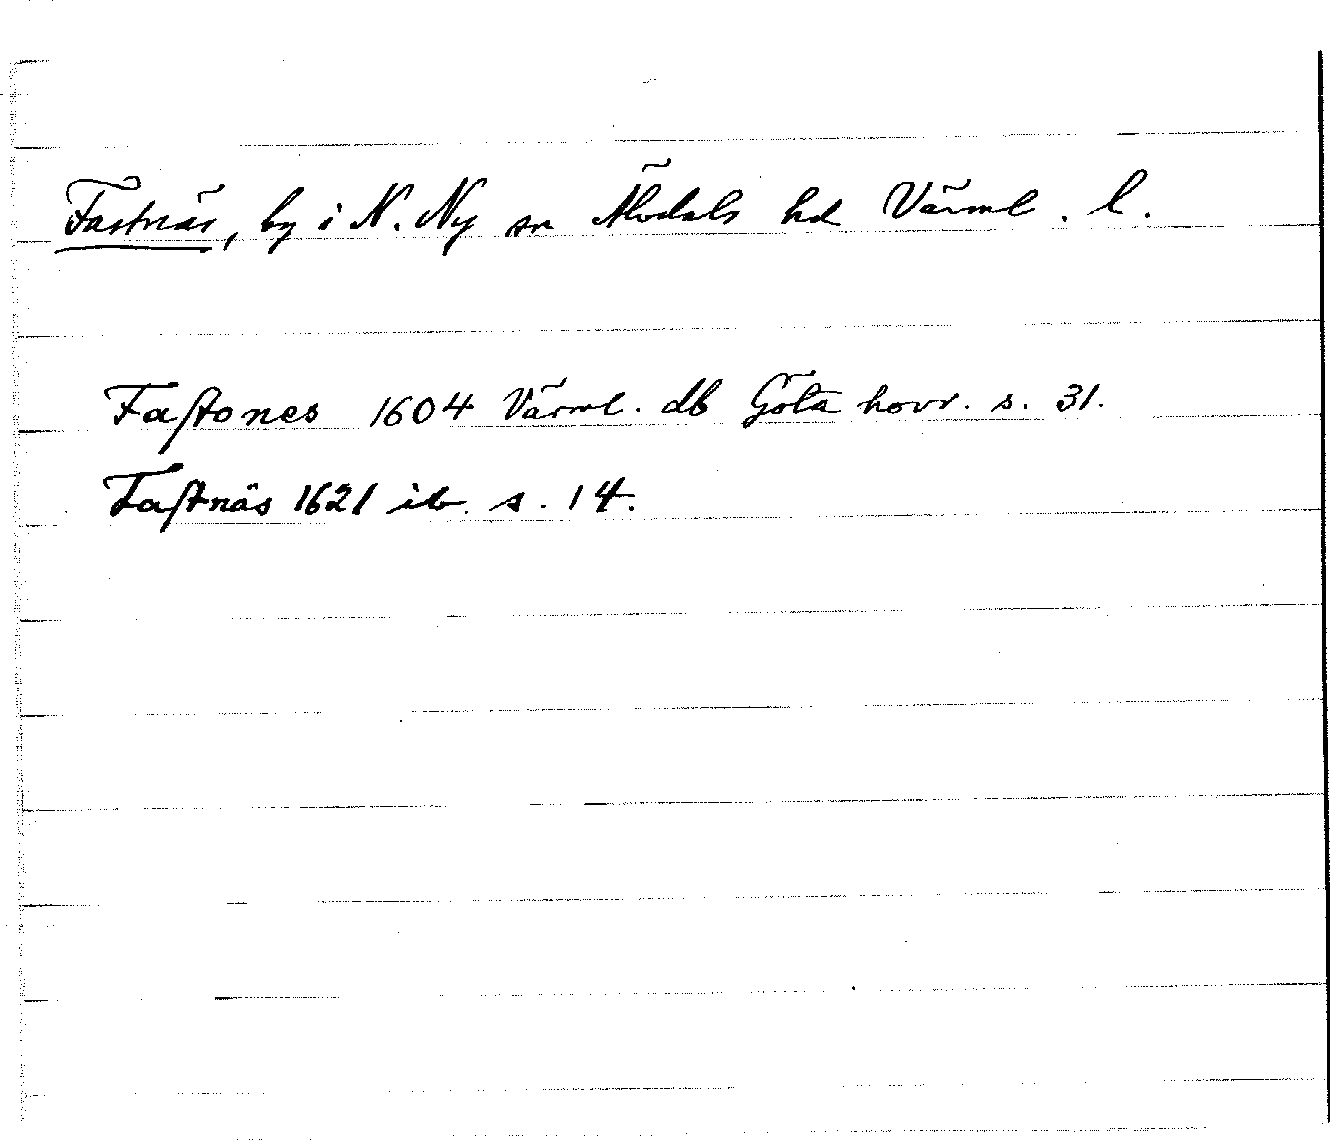 Fastnäs, by i N. Ny sn Älvdals hd Värml. l.
Faſtones 1604 Värml. db Göta hovr. s. 31.
Faſtnäs 1621 ib. s. 14.